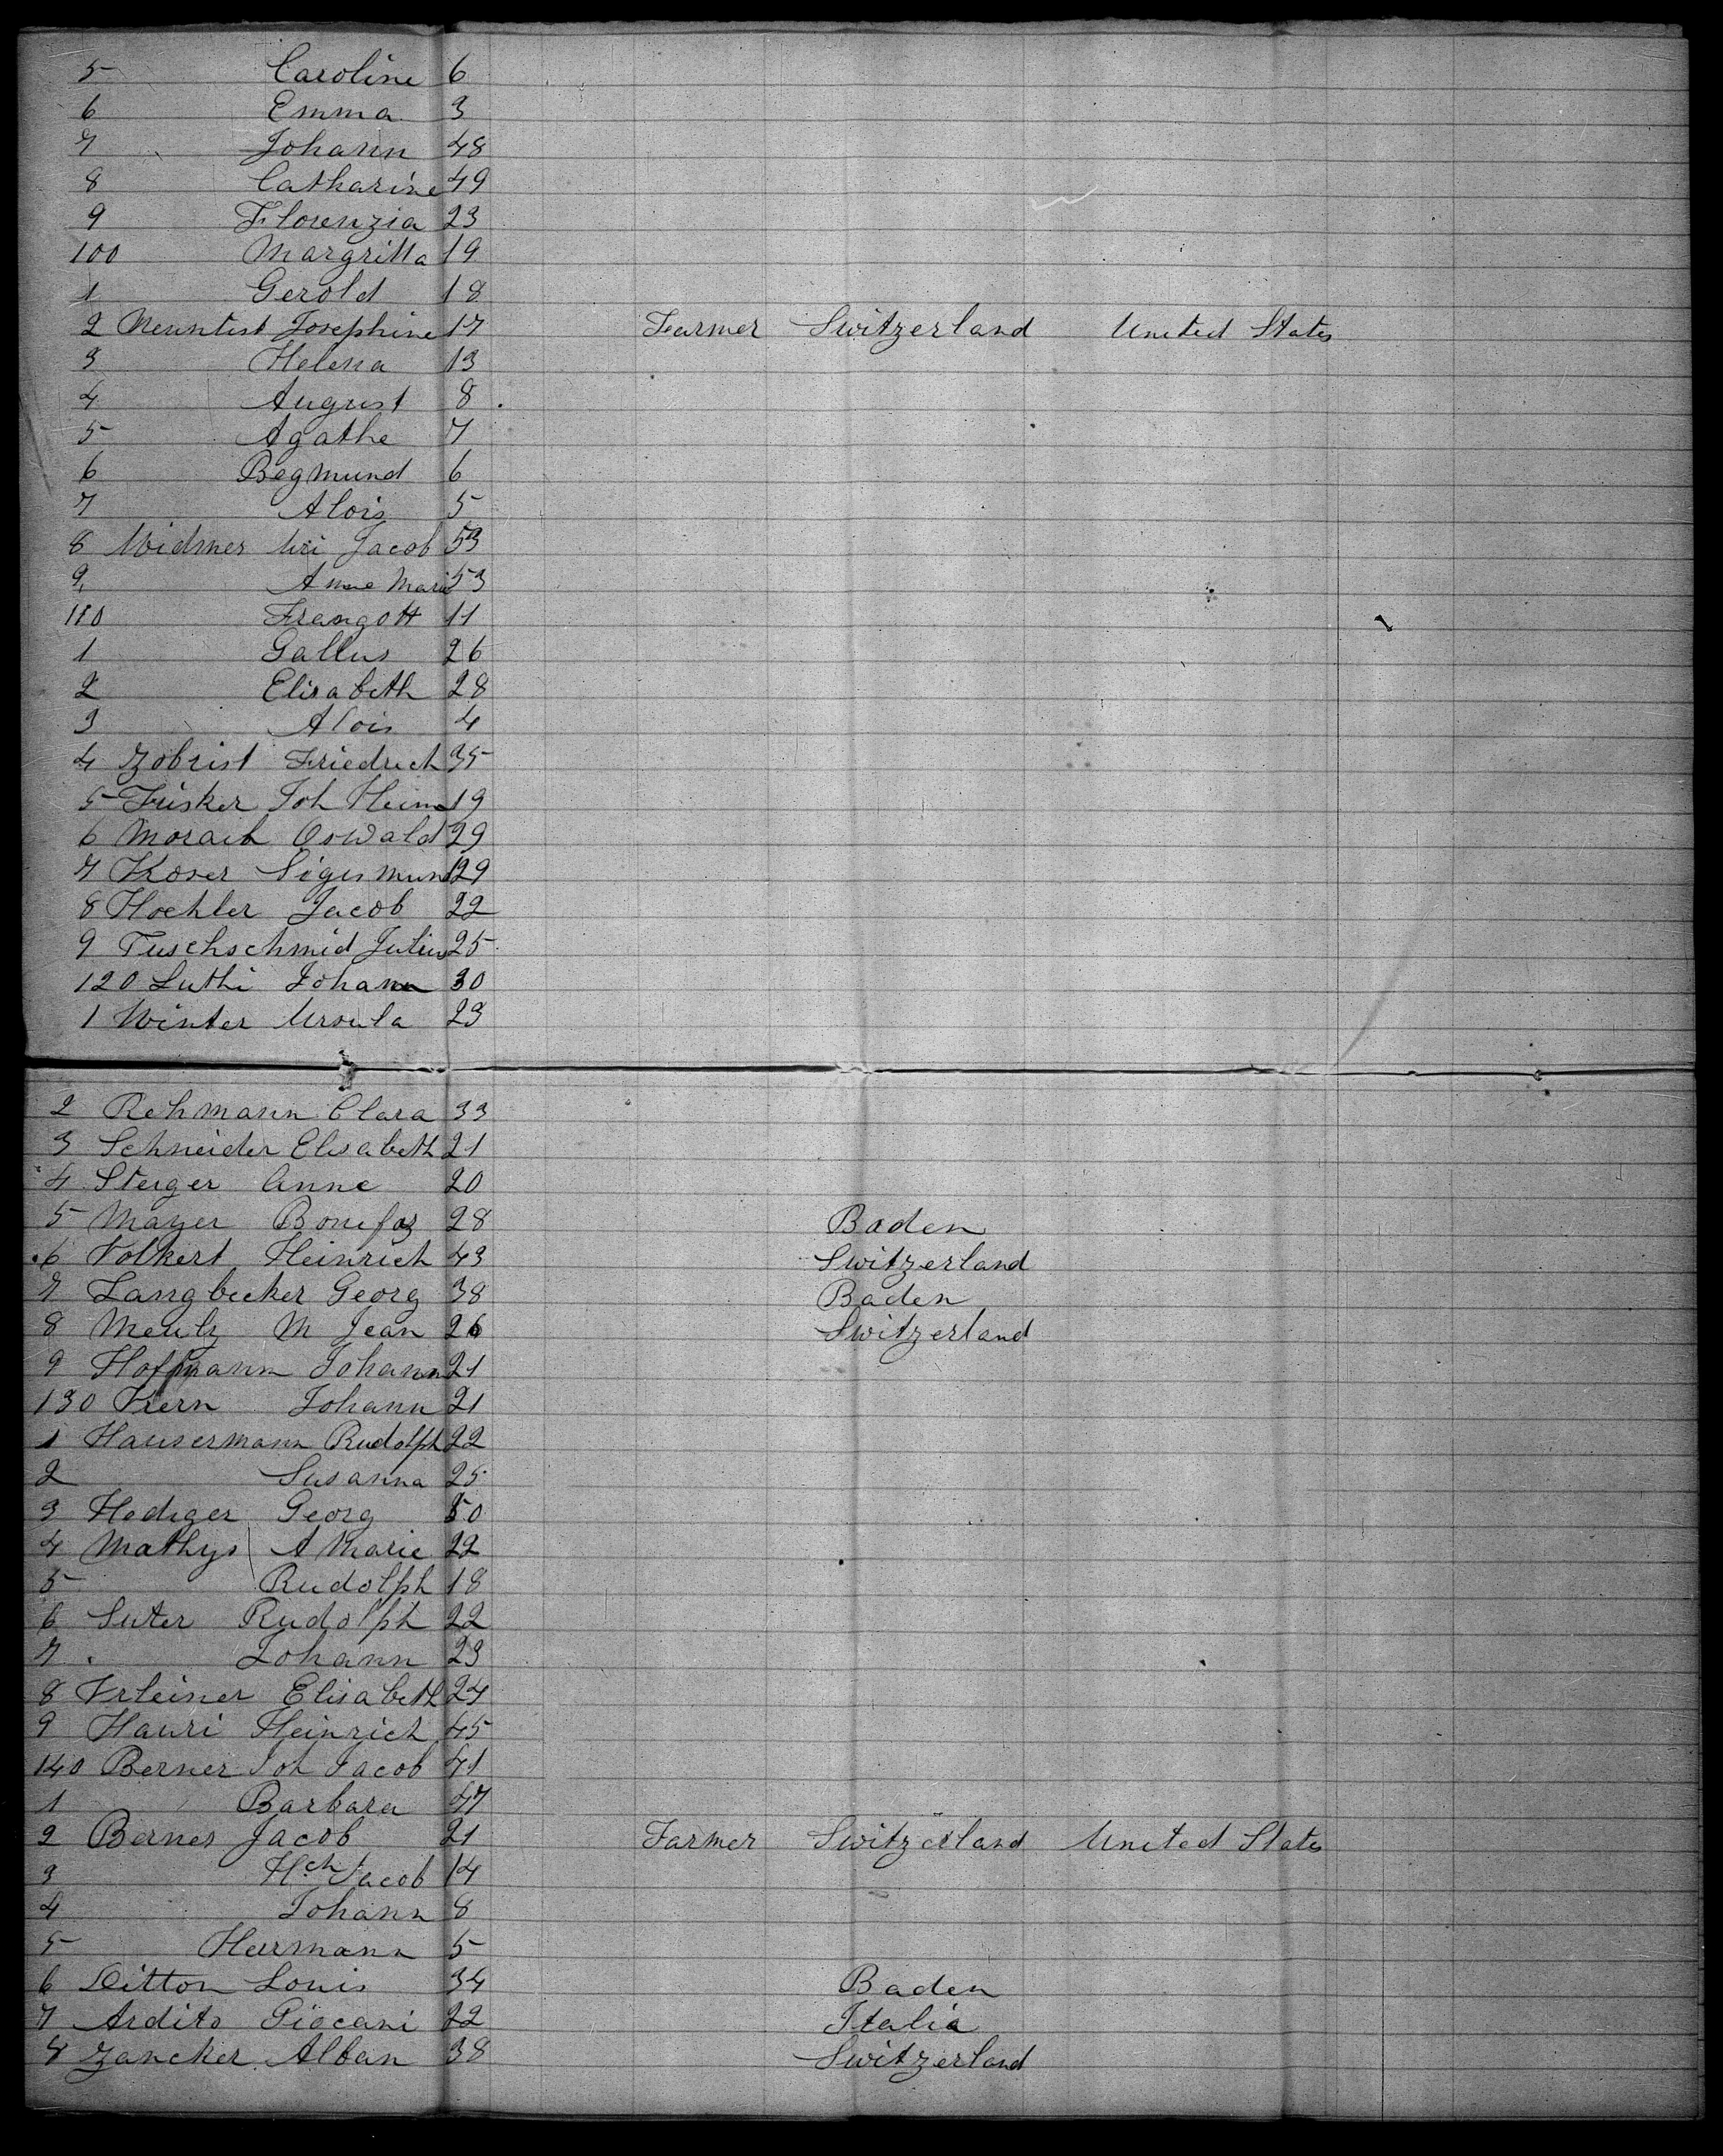 5 Caroline 6
6 Emma 3
7 Johann 48
8 Catharine 49
9 Florenzia 23
100 Margritta 19
1 Gerold 18
2 Neuntist Josephine 17 Farmer Switzerland United States
3 Helena 13
4 August 8
5 Agathe 7
6 Begmund 6
7 Alois 5
8 Widmer Uri Jacob 53
9 Anne Marie 53
110 Frangott 11
1 Gallus 26
2 Elisabeth 28
3 Alois 4
4 Zobrist Friedrich 35
5 Füsker Joh Heim 19
6 Morach Oswald 29
7 Koser Sigismund 29
8 Hoehler Jacob 22
9 Tuschschmid Julius 25
120 Luthi Johann 30
1 Winter Ursula 23
2 Rehmann Clara 33
3 Schneider Elisabeth 21
4 Steiger Anne 20
5 Mayer Bonifaz 28 Baden
6 Volkert Heinrich 43 Switzerland
7 Langbecker Georg 38 Baden
8 M Jean 26 Switzerland
9 Hoffmann Johann 21
130 Kern Johann 21
1 Hausermann Rudolph 22
2 Susanna 25
3 Hediger Georg 50
4 Mathys A Marie 22
5 Rudolph 18
6 Suter Rudolph 22
7 Johann 23
8 Elisabeth 24
9 Hauri Heinrich 45
140 Berner Joh Jacob 41
1 Barbara 47
2 Bernes Jacob 21 Farmer Switzerland United States
3 Hch Jacob 14
4 Johann 8
5 Hermann 5
6 Ditton Louis 34 Baden
7 Ardito Giocani 22 Italia
8 Zancker Alban 38 Switzerland